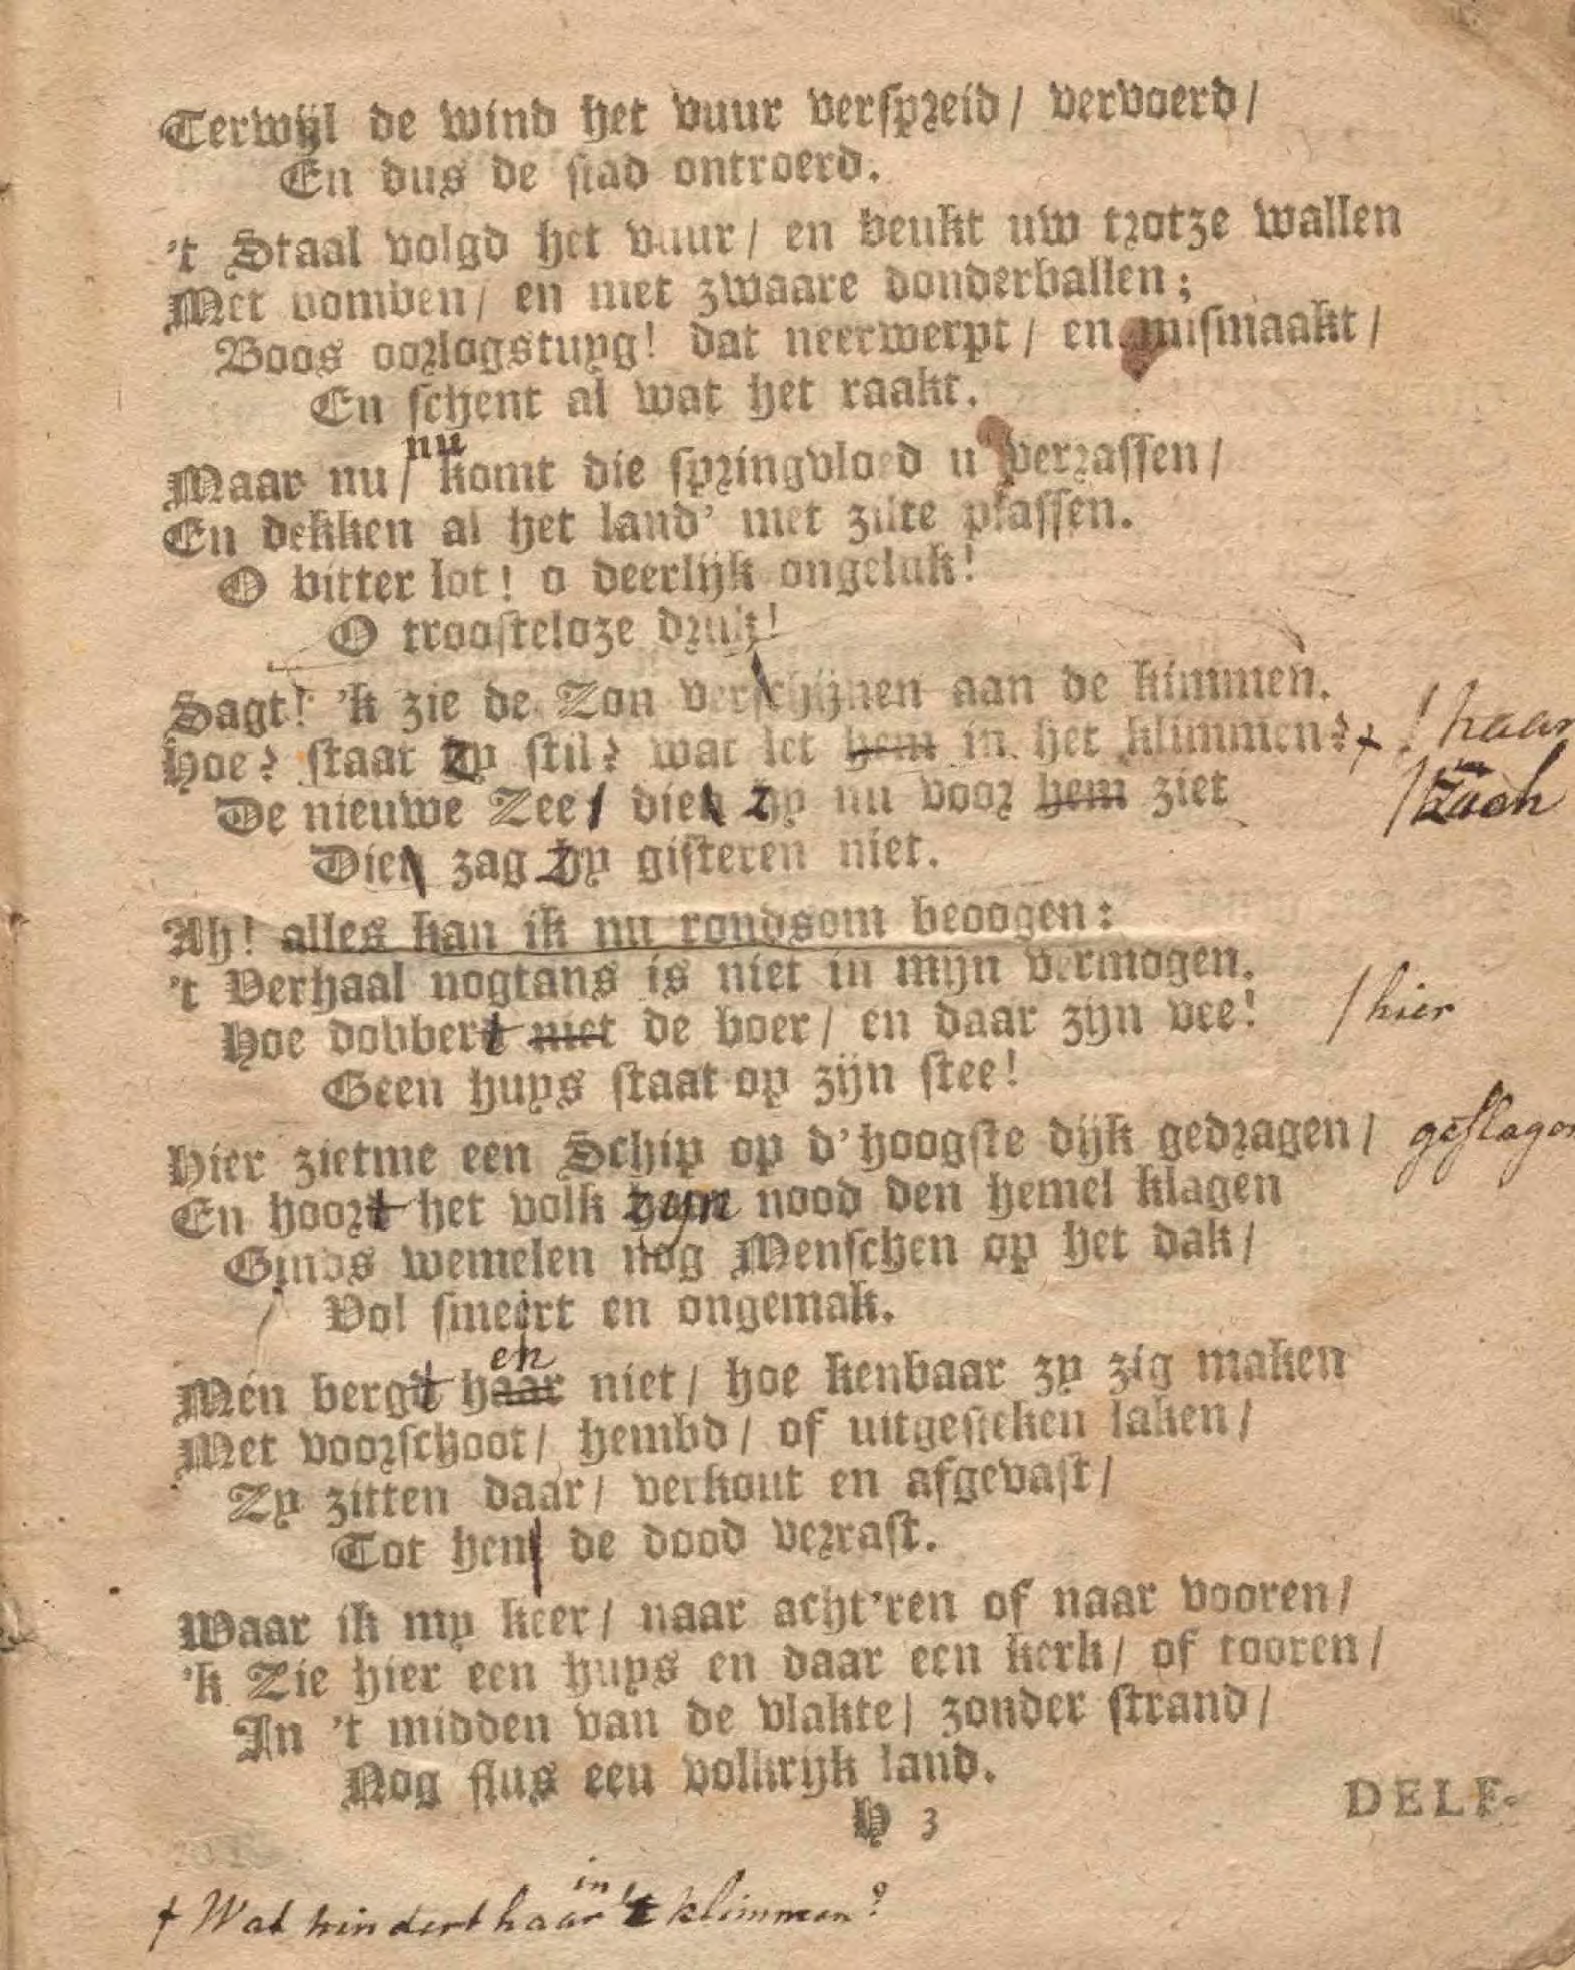 Terwijl de wind het vuur verspreid / vervoerd /
En dus de stad ontroerd.
't Staal volgd het vuur / en beukt uw trotze wallen
Met bomben / en met zwaare donderballen;
Boos oorlogstuyg! dat neerwerpt / en mismaakt /
En schent al wat het raakt.
nu
Maar nu / komt die springvloed u verrassen /
En dekken al het land' met zilte plassen.
O bitter lot! o deerlijk ongeluk!
O troosteloze druk!
Sagt! 'k zie de Zon verschijnen aan de kimmen.
Hoe? staat zy stil? wat let hem in het klimmen? + / haar
De nieuwe Zee / die zy nu voor hem ziet / zach
Die zag zy gisteren niet.
Ah! alles kan ik nu rondsom beoogen:
't Verhaal nogtans is niet in mijn vermogen.
Hoe dobbert niet de boer / en daar zijn vee! / hier
Geen huys staat op zijn stee!
Hier zietme een Schip op d'hoogste dijk gedragen / geslagen
En hoort het volk zyn nood den hemel klagen
Ginds wemelen nog Menschen op het dak /
Vol smert en ongemak.
en
Men bergd haar niet / hoe kenbaar zy zig maken
Met voorschoot / hembd / of uitgesteken laken /
Zy zitten daar / verkout en afgevast /
Tot hen de dood verrast.
Waar ik my keer / naar acht'ren of naar vooren /
'k Zie hier een huys en daar een kerk / of tooren /
In 't midden van de vlakte / zonder strand /
Nog flus een volkrijk land.
H 3
DELF-
in
+ Wat hindert haar 't klimmen?